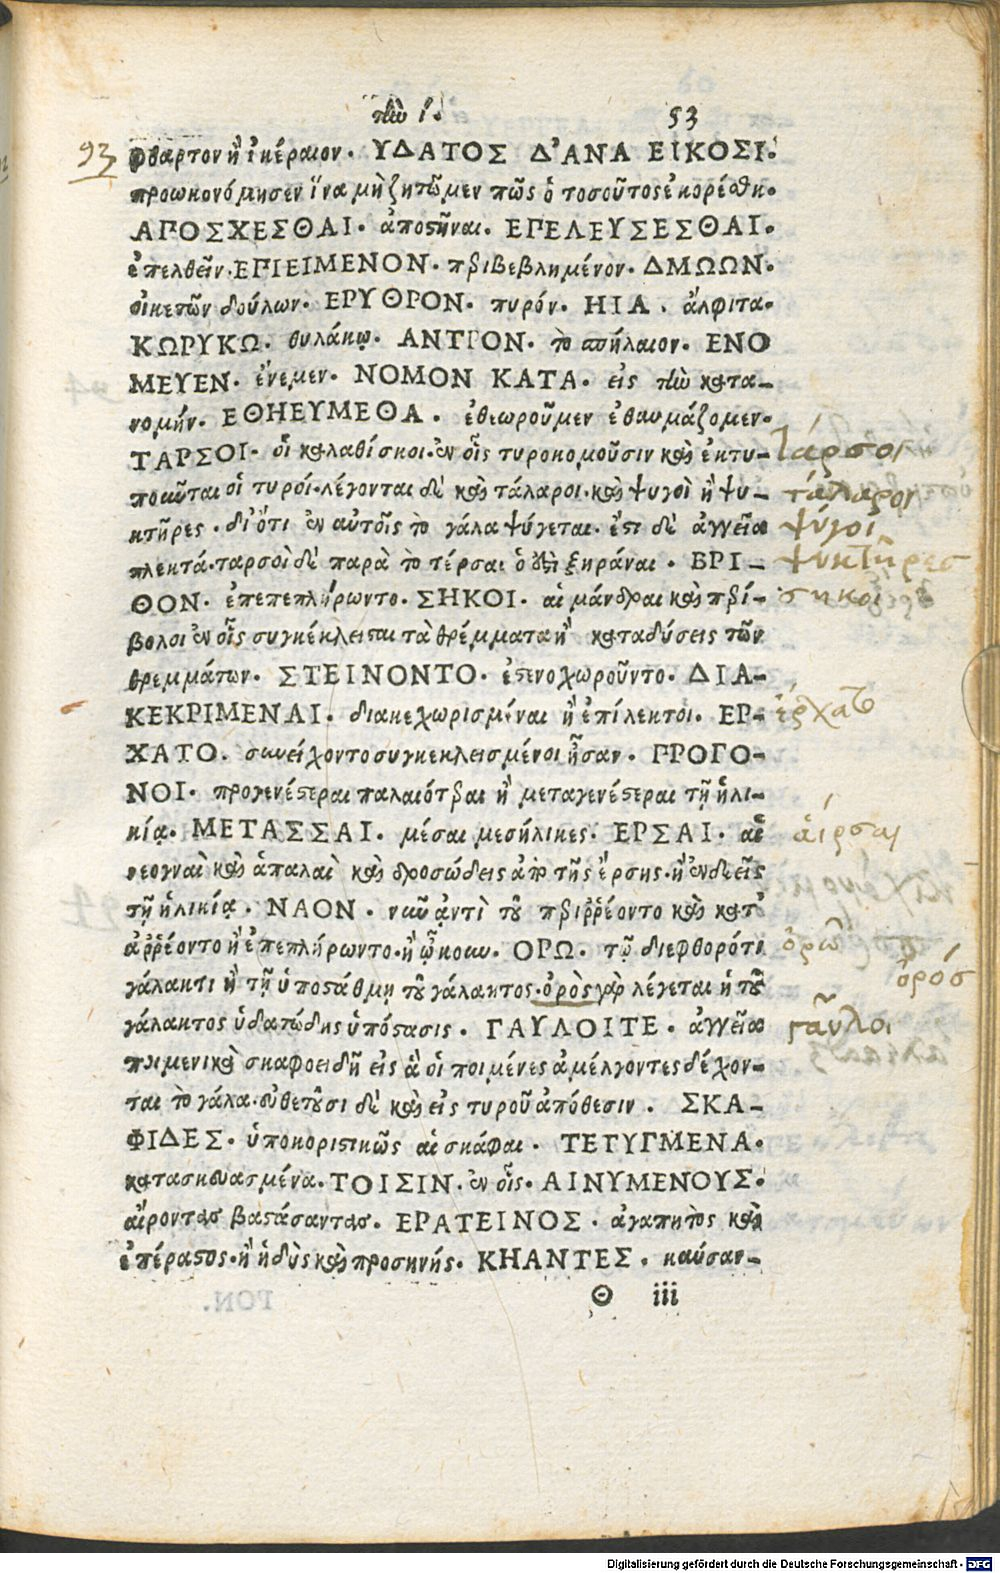 τὴν ί. 53
93
φθαρτον ἢ ἀκέραιον. ΥΔΑΤΟΣ Δ'ΑΝΑ ΕΙΚΟΣΙ.
προωκονόμησεν ἵνα μὴ ζητῶμεν πῶς ὁ τοσοῦτος ἐκορέσθη.
ΑΠΟΣΧΕΣΘΑΙ. ἀποστῆναι. ΕΠΕΛΕΥΣΕΣΘΑΙ.
ἐπελθεῖν. ΕΠΙΕΙΜΕΝΟΝ. περιβεβλημένον. ΔΜΩΩΝ.
οἰκετῶν δούλων. ΕΡΥΘΡΟΝ. πυρόν. ΗΙΑ. ἄλφιτα.
ΚΩΡΥΚΩ. θυλάκῳ. ΑΝΤΡΟΝ. τὸ σπήλαιον. ΕΝΟ
ΜΕΥΕΝ. ἔνεμεν. ΝΟΜΟΝ ΚΑΤΑ. εἰς τὴν κατα-
νομήν. ΕΘΗΕΥΜΕΘΑ. ἐθεωροῦμεν ἐθαυμάζομεν.
ΤΑΡΣΟΙ. οἱ καλαθίσκοι. ἐν οἷς τυροκομοῦσιν καὶ ἐκτυ- τάρσοι
ποῦνται οἱ τυροί. λέγονται δὲ καὶ τάλαροι. καὶ ψυγοὶ ἢ ψυ- τάλαροι
κτῆρες. δι' ὅτι ἐν αὐτοῖς τὸ γάλα ψύγεται. ἔστι δὲ ἀγγεῖα ψύγοι
πλεκτά. ταρσοὶ δὲ παρὰ τὸ τέρσαι ὅ ἐστι ξηράναι. ΒΡΙ- ψυκτῆρες
ΘΟΝ. ἐπεπεπλήρωντο. ΣΗΚΟΙ. αἱ μάνδραι καὶ περί- σηκοί
βολοι ἐν οἷς συγκέκλεισται τὰ θρέμματα ἢ καταδύσεις τῶν
θρεμμάτων. ΣΤΕΙΝΟΝΤΟ. ἐστενοχωροῦντο. ΔΙΑ-
ΚΕΚΡΙΜΕΝΑΙ. διακεχωρισμέναι ἢ ἐπίλεκτοι. ΕΡ- ἐρχατο
ΧΑΤΟ. συνείχοντο συγκεκλεισμένοι ἦσαν. ΠΡΟΓΟ-
ΝΟΙ. προγενέστεραι παλαιότεραι ἢ μεταγενέστεραι τῇ ἡλι-
κίᾳ. ΜΕΤΑΣΣΑΙ. μέσαι μεσήλικες. ΕΡΣΑΙ. αἱ αίρσαι
νεογναὶ καὶ ἁπαλαὶ καὶ δροσώδεις ἀπὸ τῆς ἔρσης. ἢ ἐνδεεῖς
τῇ ἡλικίᾳ. ΝΑΟΝ. ναῦ ἀντὶ τοῦ περιῤῥέοντο καὶ κατ'
ἀῤῥέοντο ἢ ἐπεπλήρωντο. ἢ ᾤκουν. ΟΡΩ. τῷ διεφθορότι ὀρῶ
γάλακτι ἢ τῇ ὑποστάθμῃ τοῦ γάλακτος. ὀρὸς γὰρ λέγεται ἡ τοῦ ὀρός
γάλακτος ὑδατώδης ὑπόστασις. ΓΑΥΛΟΙΤΕ. ἀγγεῖα γαῦλοι
ποιμενικὰ σκαφοειδῆ εἰς ἃ οἱ ποιμένες ἀμέλγοντες δέχον-
ται τὸ γάλα. εὐθετοῦσι δὲ καὶ εἰς τυροῦ ἀπόθεσιν. ΣΚΑ-
ΦΙΔΕΣ. ὑποκοριστικῶς αἱ σκάφαι. ΤΕΤΥΓΜΕΝΑ.
κατασκευασμένα. ΤΟΙΣΙΝ. ἐν οἷς. ΑΙΝΥΜΕΝΟΥΣ.
αἴροντας βαστάσαντας. ΕΡΑΤΕΙΝΟΣ. ἀγαπητὸς καὶ
ἐπέραστος. ἢ ἡδὺς καὶ προσηνής. ΚΗΑΝΤΕΣ. καύσαν-
Θ iii
Digitalisierung gefördert durch die Deutsche Forschungsgemeinschaft - DFG